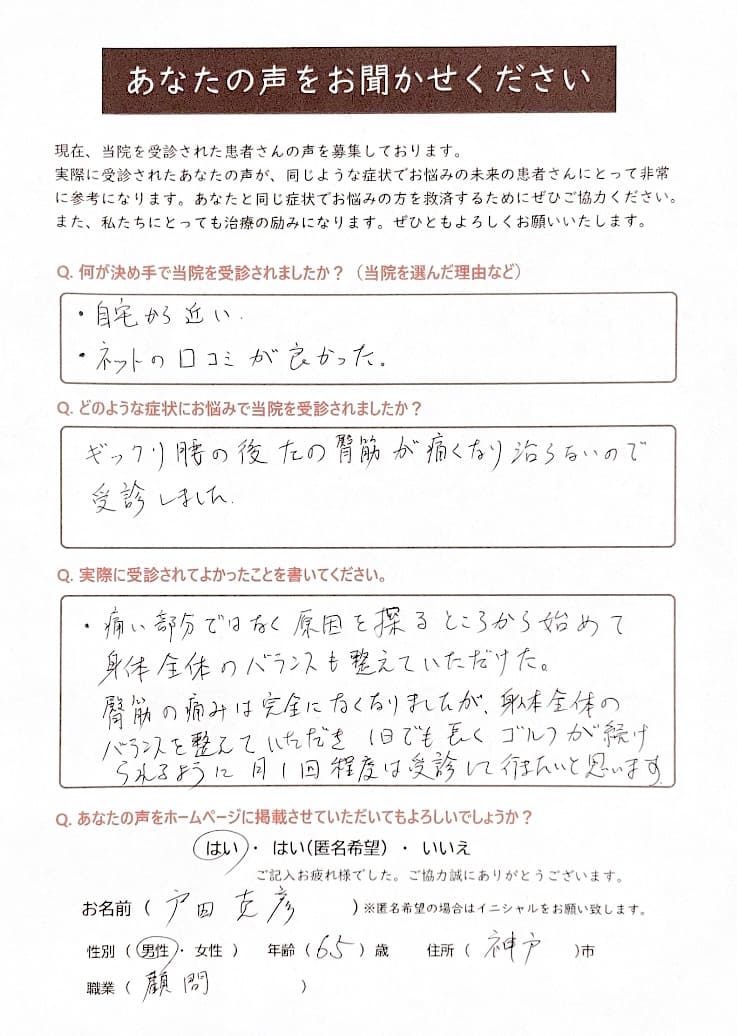 あなたの声をお聞かせください
現在、当院を受診された患者さんの声を募集しております。
実際に受診されたあなたの声が、同じような症状でお悩みの未来の患者さんにとって非常
に参考になります。あなたと同じ症状でお悩みの方を救済するためにぜひご協力ください。
また、私たちにとっても治療の励みになります。ぜひともよろしくお願いいたします。
Q. 何が決め手で当院を受診されましたか？（当院を選んだ理由など）
・自宅から近い.
・ネットの口コミが良かった。
Q. どのような症状にお悩みで当院を受診されましたか？
ギックリ腰の後左の臀筋が痛くなり治らないので
受診しました.
Q. 実際に受診されてよかったことを書いてください。
・痛い部分ではなく原因を探るところから始めて
身体全体のバランスも整えていただけた。
臀筋の痛みは完全になくなりましたが、身体全体の
バランスを整えていただき 1日でも長くゴルフが続け
られるように月1回程度は受診して行きたいと思います.
Q. あなたの声をホームページに掲載させていただいてもよろしいでしょうか？
はい ・ はい（匿名希望） ・ いいえ
ご記入お疲れ様でした。ご協力誠にありがとうございます。
お名前（ 戸田 克彦 ）※匿名希望の場合はイニシャルをお願い致します。
性別（ 男性 ・ 女性 ） 年齢（ 65 ）歳 住所（ 神戸 ）市
職業（ 顧問 ）